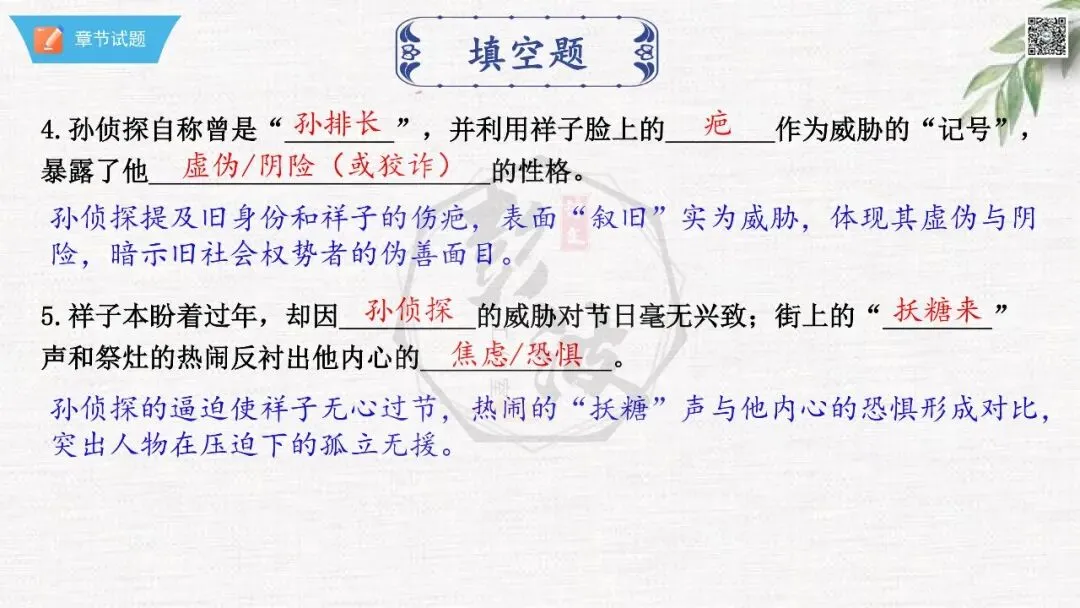 章节试题
填空题
4.孙侦探自称曾是“孙排长”，并利用祥子脸上的疤作为威胁的“记号”，
暴露了他虚伪/阴险（或狡诈）的性格。
孙侦探提及旧身份和祥子的伤疤，表面“叙旧”实为威胁，体现其虚伪与阴
险，暗示旧社会权势者的伪善面目。
5.祥子本盼着过年，却因孙侦探的威胁对节日毫无兴致；街上的“扷糖来”
声和祭灶的热闹反衬出他内心的焦虑/恐惧。
孙侦探的逼迫使祥子无心过节，热闹的“扷糖”声与他内心的恐惧形成对比，
突出人物在压迫下的孤立无援。